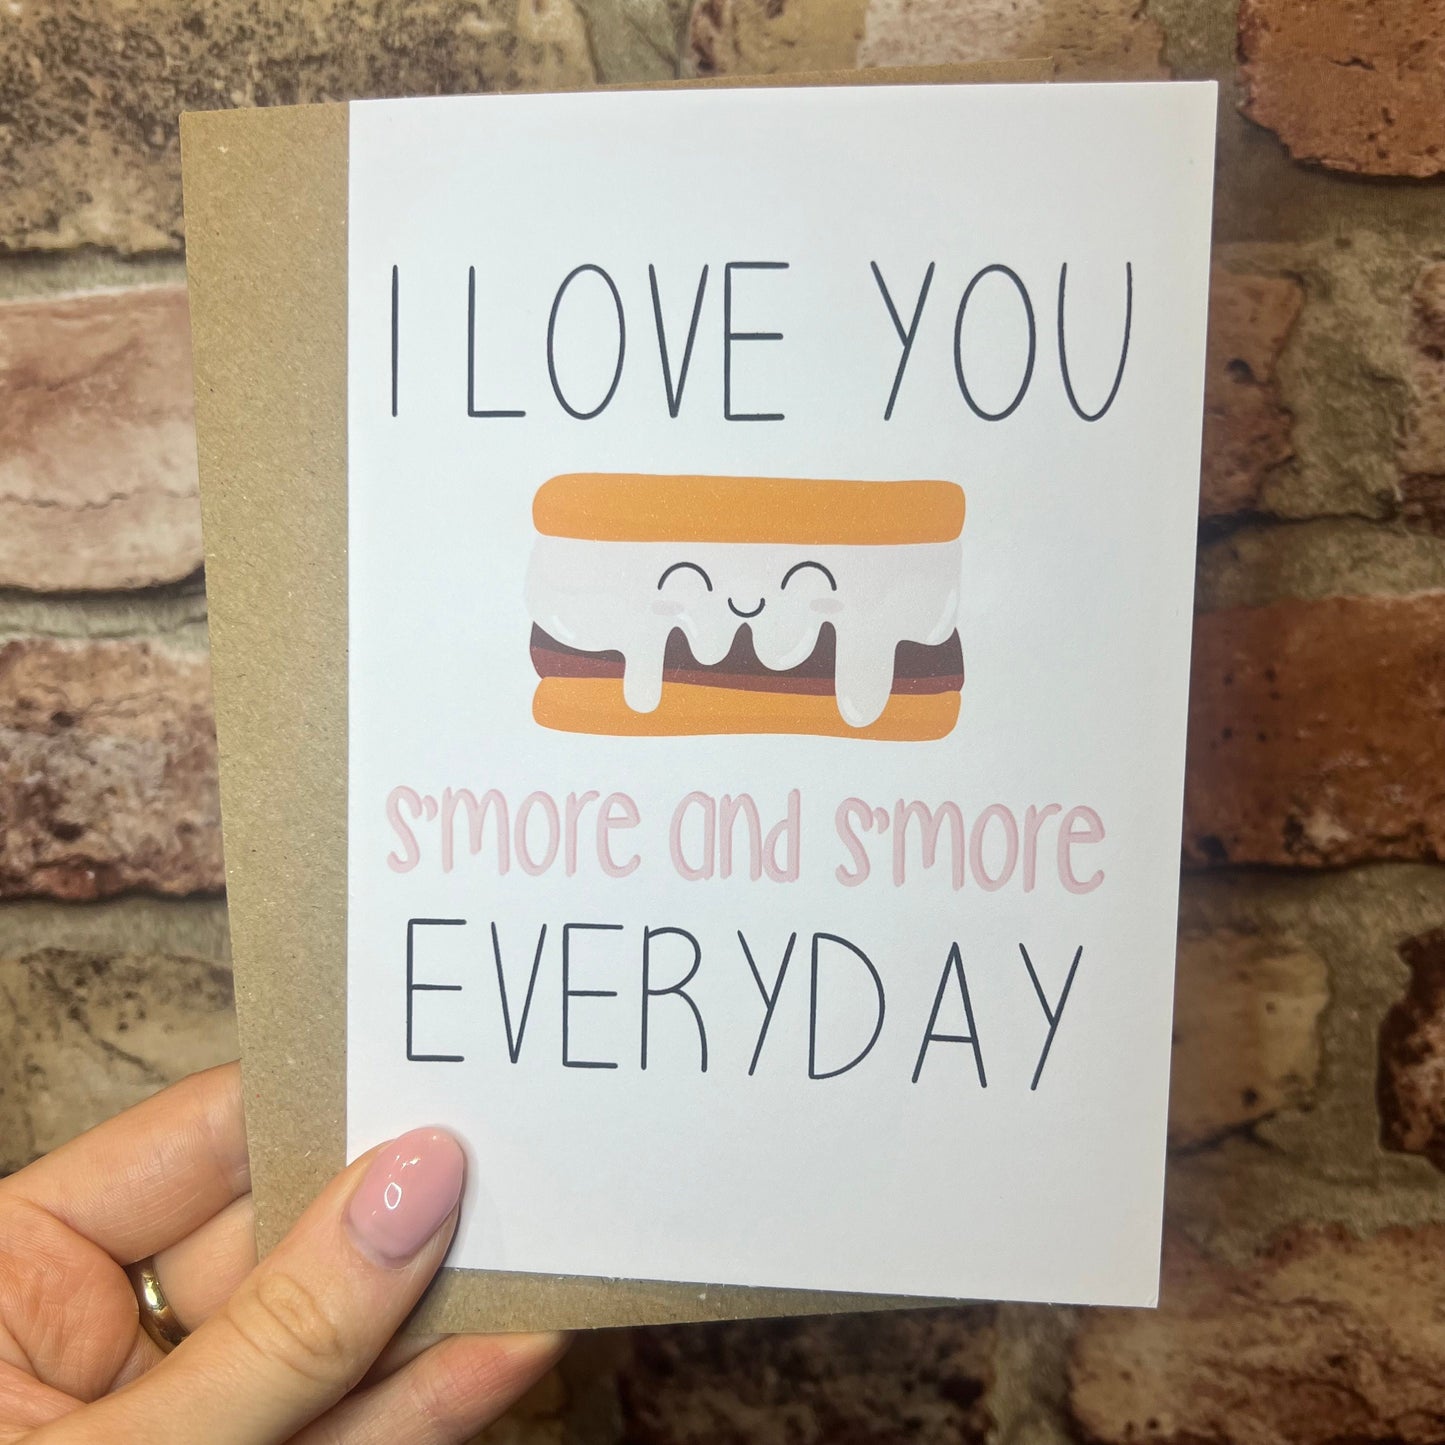 I LOVE YOU
s'more and s'more
EVERYDAY